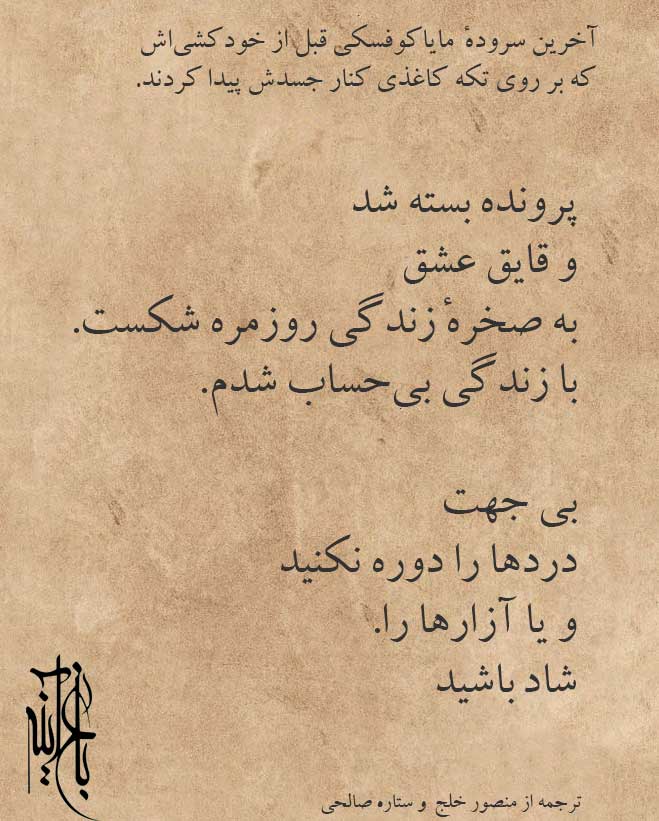 آخرین سرودهٔ مایاکوفسکی قبل از خودکشی‌اش
که بر روی تکه کاغذی کنار جسدش پیدا کردند.
پرونده بسته شد
و قایق عشق
به صخرهٔ زندگی روزمره شکست.
با زندگی بی‌حساب شدم.
بی جهت
دردها را دوره نکنید
و یا آزارها را.
شاد باشید
ترجمه از منصور خلج و ستاره صالحی